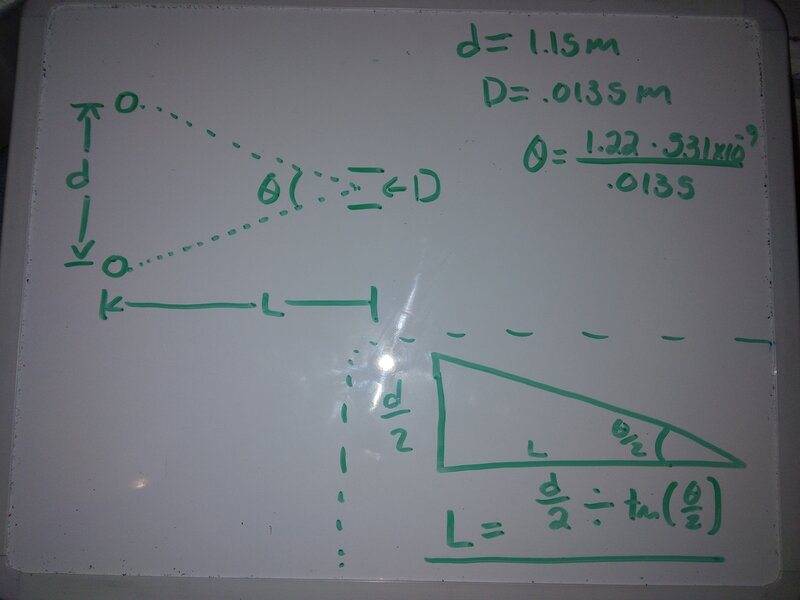 d = 1.15m
D = .0135m
θ = 1.22 · 531x10^-9
.0135
O
d
θ
← D
O
L
d/2
θ/2
L
L = d/2 ÷ tan(θ/2)